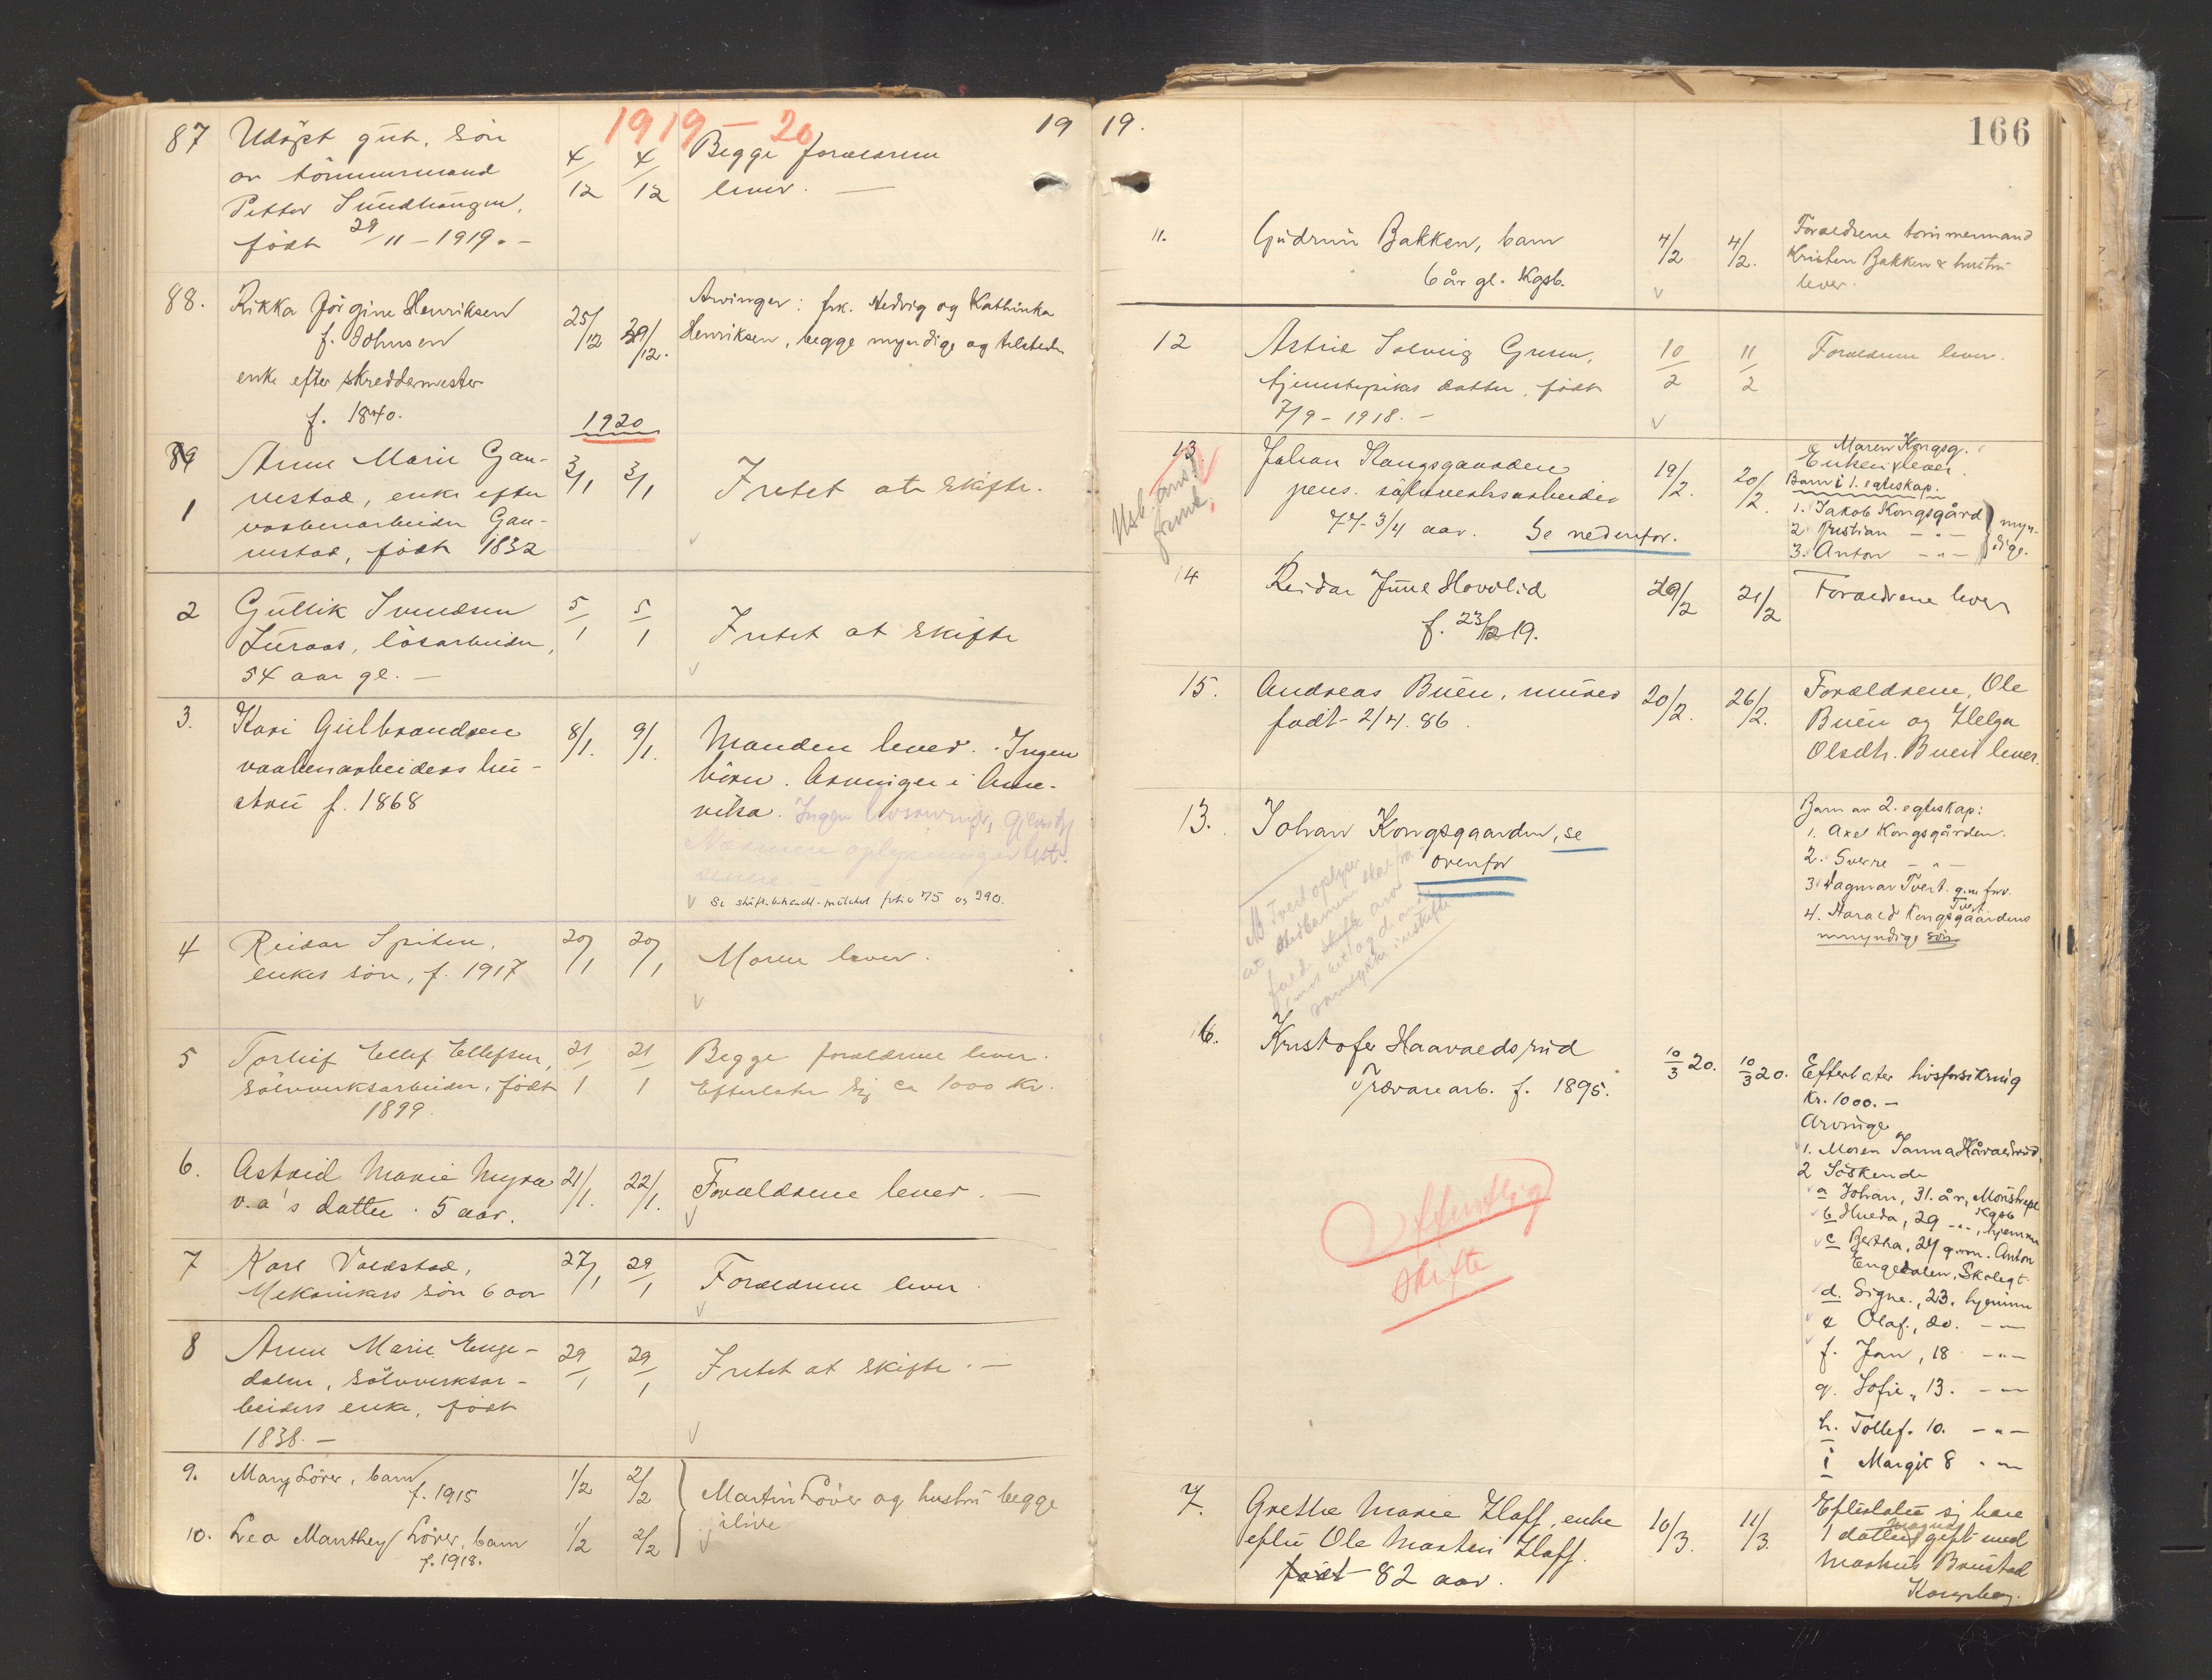 1919 – 20
19
87 Udöpt gut, sön
av tömmermand
Petter Sundhaugen,
födt 29/11 – 1919. –
4/12 4/12
Begge foraeldrene
lever. —
88. Rikka Jörgine Henriksen
f. Johnsen
enke efter skreddermester
f. 1840.
25/12 29/12.
Arvinger: frk. Hedvig og Kathinka
Henriksen, begge myndige og tilstede
1920
89
1
Anne Marie Gau-
nestad, enke efter
vaabenarbeider Gau-
nestad, födt 1832
3/1 3/1
Intet at skifte.
2 Gullik Svendsen
Luraas, lösarbeider,
54 aar gl. —
5/1 5/1
Intet at skifte
3. Kari Gulbrandsen
vaabenarbeiders hu-
stru f. 1868
8/1. 9/1.
Manden lever. Ingen
börn. Arvinger i Ame-
rika. Ingen
Nærmere oplysninger
Se skifte.behandl.
folio 75 og 290.
4 Reidar Spiten,
enkes sön, f. 1917
20/1 20/1
Moren lever.
5 Torleif Ellef Ellefsen,
sölvverksarbeider, födt
1899.
21/1 21/1
Begge foraeldrene lever.
Efterlater sig ca 1000 kr.
6. Astrid Marie Myra
v.a's datter. 5 aar.
21/1. 22/1.
Foraeldrene lever. —
7 Karl Valdstad,
Mekanikers sön 6 aar
27/1 29/1
Foraeldrene lever.
8 Anne Marie Enge-
dalen, sölvverksar-
beiders enke, födt
1838. —
29/1 29/1
Intet at skifte. —
9. Mary Löver, barn
f. 1915
1/2 2/2
Martin Löver og hustru begge
ilive
10. Lea Manthey Löver, barn
f. 1918.
1/2 2/2
19.
166
11. Gudrun Bakken, barn
6 år gl. Kgsb.
4/2 4/2.
Foraeldrene tömmermand
Kristen Bakken & hustru
lever.
12 Astrid Solveig Gruen,
tjenestepikes datter, födt
7/9 – 1918. –
10/2 11/2
Foraeldrene lever.
13. Johan Kongsgaarden
pens. sölvverksarbeider
77 3/4 aar. Se nedenfor.
19/2. 20/2.
Maren Kongsg.
Enken lever.
Barn i 1. egteskap.
1. Jakob Kongsgård
2. Kristian — " —
3. Anton — " —
myn-
dige.
14 Reidar Juul Hovdlid
f. 23/12 19.
20/2 21/2
Foraeldrene lever
15. Andreas Buen, murer
födt 2/4. 86.
20/2. 26/2.
Foraeldrene, Ole
Buen og Helga
Olsdtr. Buen lever.
13. Johan Kongsgaarden, se
ovenfor
Barn av 2. egteskap:
1. Axel Kongsgården.
2. Sverre — " —
3. Dagmar Tvert. g.m. fhv.
Tvert
4. Harald Kongsgaardens
umyndige sön
16. Kristofer Haavaldsrud
Trævarearb. f. 1895.
10/3 20. 10/3 20.
Efterlater livsforsikring
Kr. 1000. —
Arvinge
1. Moren Janna Håvaldsrud.
2 Söskende
a Johan, 31. år,
Kgsb
b Hulda, 29 — " —, hjemme
c Bertha, 27 g.m. Anton
Engedalen, Skolegt.
d. Signe., 23. hjemme
e Olaf, 20. — " —
f. Jan, 18 — " —
g. Sofie, 13. — " —
h. Tollef. 10. — " —
i Margit 8 — " —
Offentlig
skifte
7. Grethe Marie Hoff, enke
efter Ole Martin Hoff.
födt 82 aar.
10/3. 11/3.
Efterlater sig bare
1 datter gift med
Markus Brustad
Kongsberg.